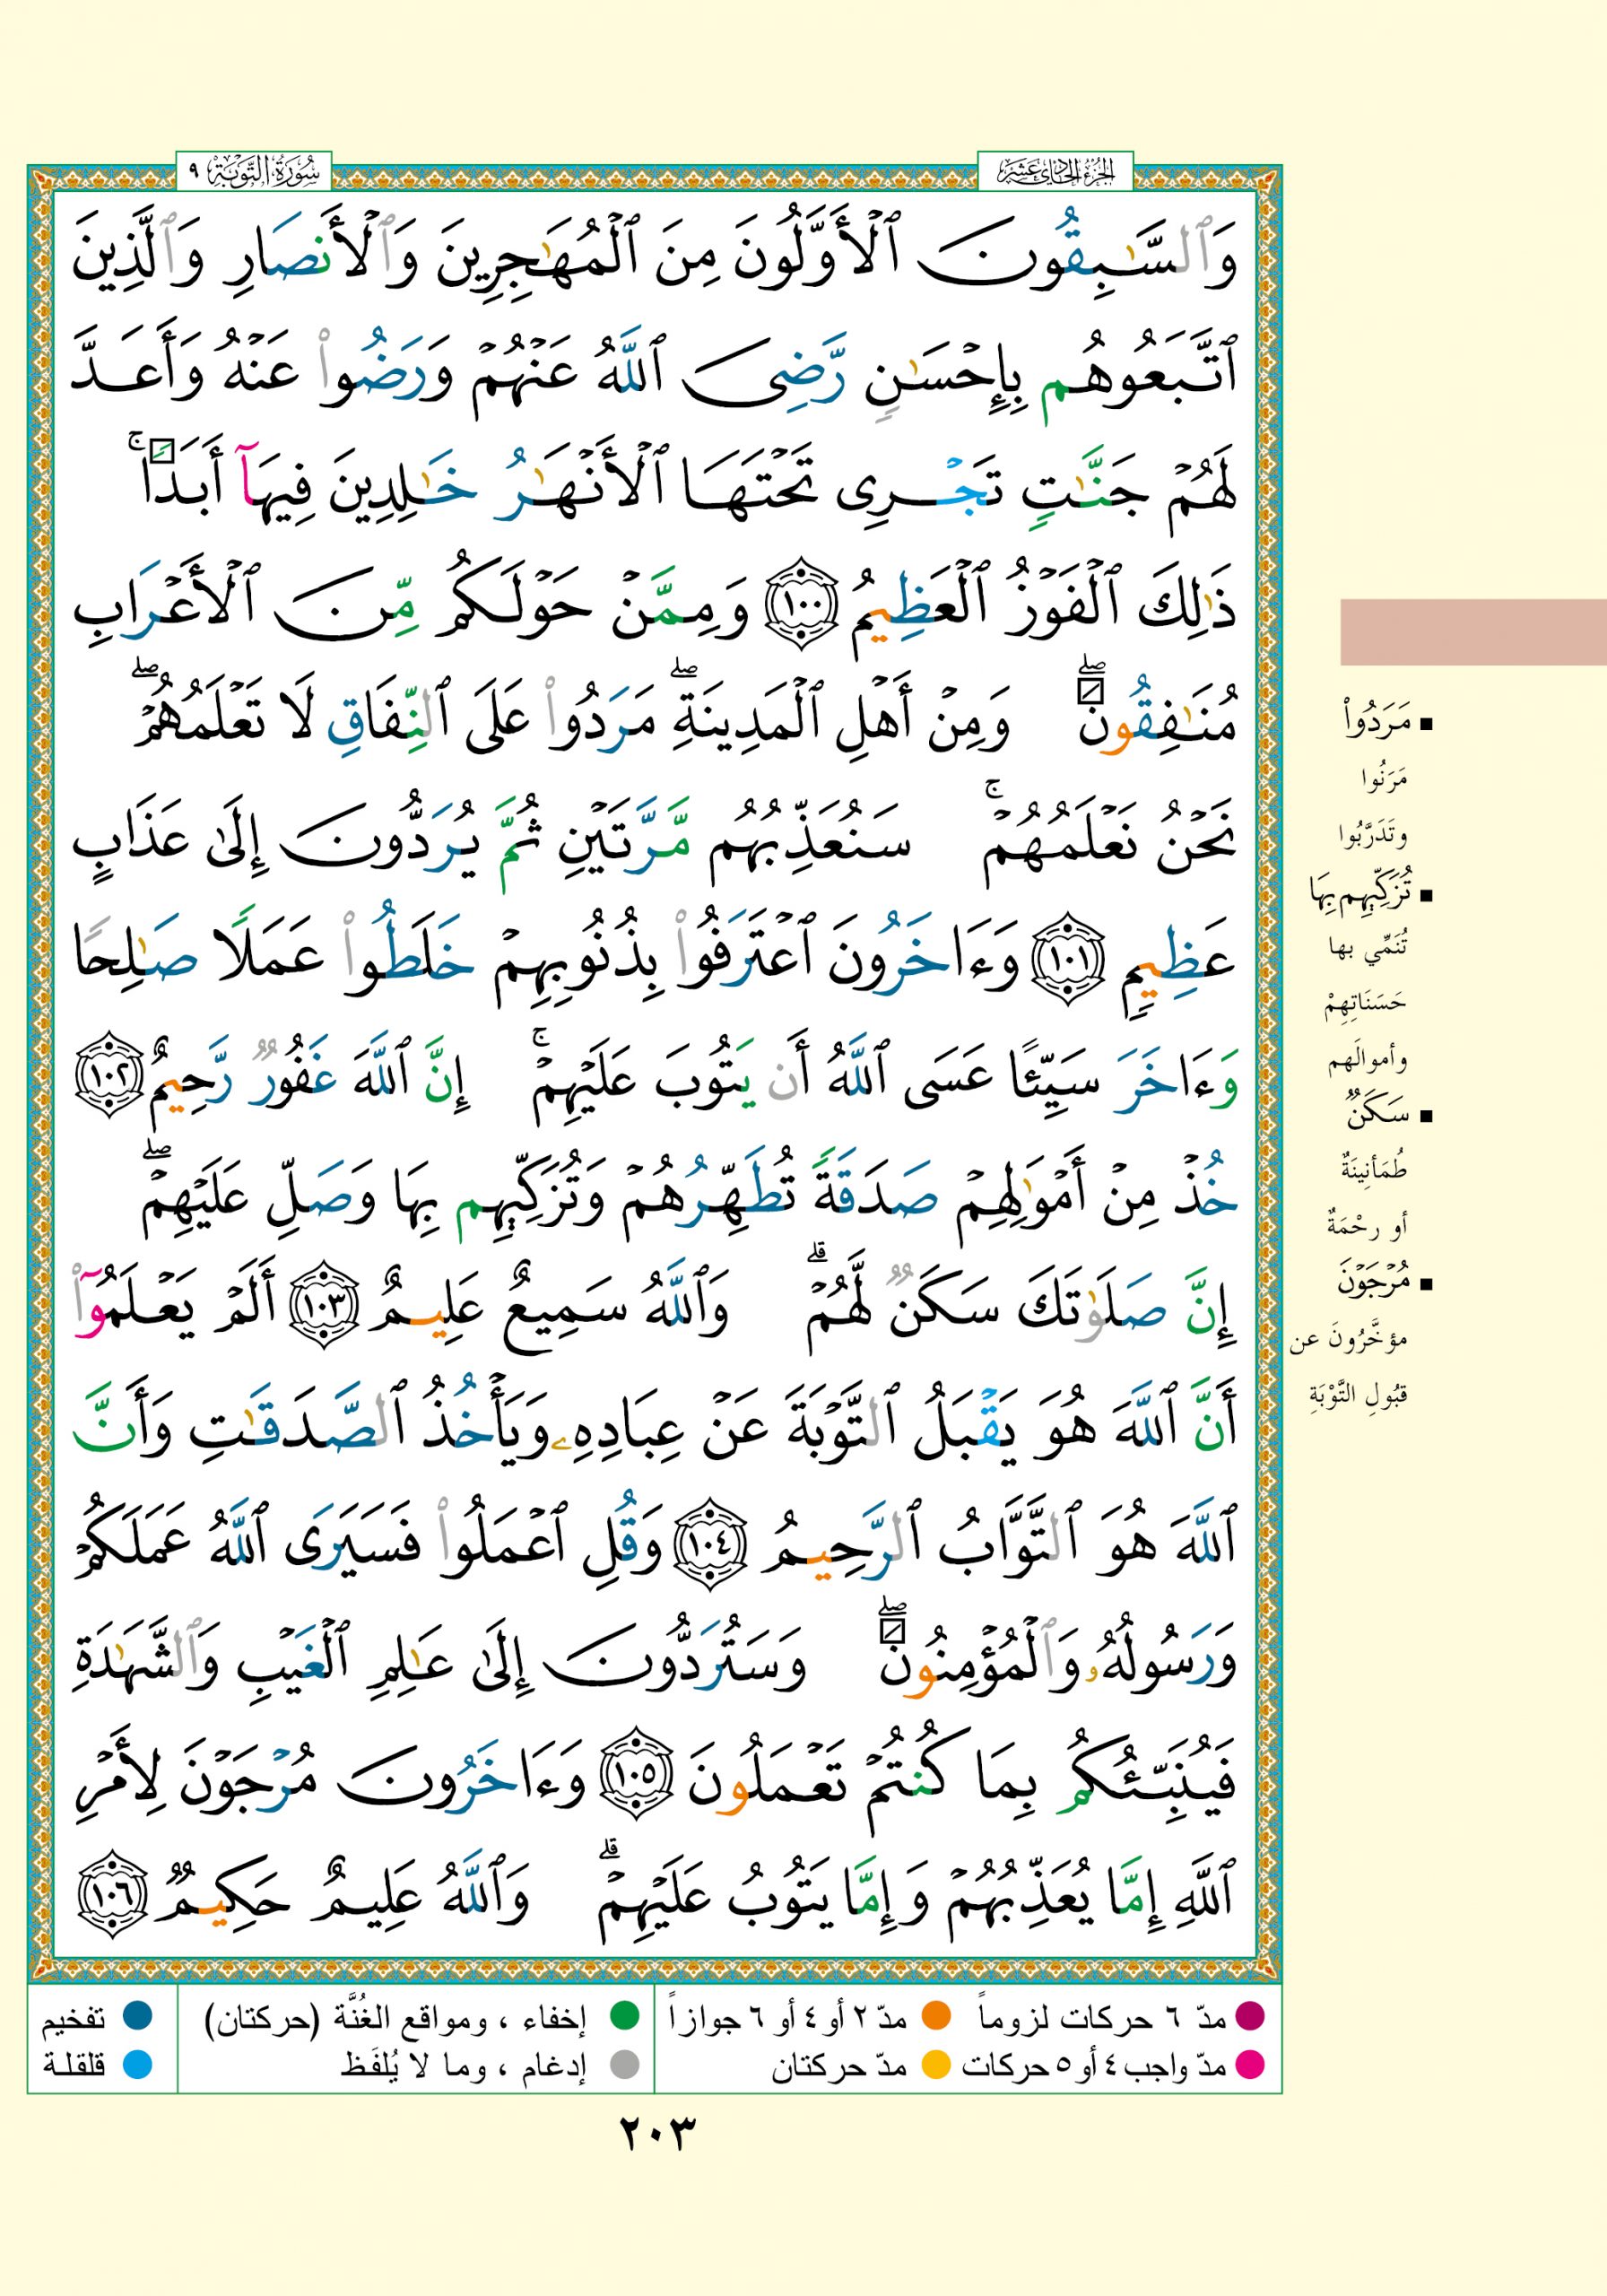 الجزء الحادي عشر
سورة التوبة ٩
وَٱلسَّـٰبِقُونَ ٱلْأَوَّلُونَ مِنَ ٱلْمُهَـٰجِرِينَ وَٱلْأَنصَارِ وَٱلَّذِينَ
ٱتَّبَعُوهُم بِإِحْسَـٰنٍ رَّضِىَ ٱللَّهُ عَنْهُمْ وَرَضُوا۟ عَنْهُ وَأَعَدَّ
لَهُمْ جَنَّـٰتٍ تَجْرِى تَحْتَهَا ٱلْأَنْهَـٰرُ خَـٰلِدِينَ فِيهَآ أَبَدًا ۚ
ذَٰلِكَ ٱلْفَوْزُ ٱلْعَظِيمُ ١٠٠ وَمِمَّنْ حَوْلَكُم مِّنَ ٱلْأَعْرَابِ
مُنَـٰفِقُونَ ۖ وَمِنْ أَهْلِ ٱلْمَدِينَةِ ۖ مَرَدُوا۟ عَلَى ٱلنِّفَاقِ لَا تَعْلَمُهُمْ ۖ
نَحْنُ نَعْلَمُهُمْ ۚ سَنُعَذِّبُهُم مَّرَّتَيْنِ ثُمَّ يُرَدُّونَ إِلَىٰ عَذَابٍ
عَظِيمٍ ١٠١ وَءَاخَرُونَ ٱعْتَرَفُوا۟ بِذُنُوبِهِمْ خَلَطُوا۟ عَمَلًا صَـٰلِحًا
وَءَاخَرَ سَيِّئًا عَسَى ٱللَّهُ أَن يَتُوبَ عَلَيْهِمْ ۚ إِنَّ ٱللَّهَ غَفُورٌ رَّحِيمٌ ١٠٢
خُذْ مِنْ أَمْوَٰلِهِمْ صَدَقَةً تُطَهِّرُهُمْ وَتُزَكِّيهِم بِهَا وَصَلِّ عَلَيْهِمْ ۖ
إِنَّ صَلَوٰتَكَ سَكَنٌ لَّهُمْ ۗ وَٱللَّهُ سَمِيعٌ عَلِيمٌ ١٠٣ أَلَمْ يَعْلَمُوٓا۟
أَنَّ ٱللَّهَ هُوَ يَقْبَلُ ٱلتَّوْبَةَ عَنْ عِبَادِهِۦ وَيَأْخُذُ ٱلصَّدَقَـٰتِ وَأَنَّ
ٱللَّهَ هُوَ ٱلتَّوَّابُ ٱلرَّحِيمُ ١٠٤ وَقُلِ ٱعْمَلُوا۟ فَسَيَرَى ٱللَّهُ عَمَلَكُمْ
وَرَسُولُهُۥ وَٱلْمُؤْمِنُونَ ۖ وَسَتُرَدُّونَ إِلَىٰ عَـٰلِمِ ٱلْغَيْبِ وَٱلشَّهَـٰدَةِ
فَيُنَبِّئُكُم بِمَا كُنتُمْ تَعْمَلُونَ ١٠٥ وَءَاخَرُونَ مُرْجَوْنَ لِأَمْرِ
ٱللَّهِ إِمَّا يُعَذِّبُهُمْ وَإِمَّا يَتُوبُ عَلَيْهِمْ ۗ وَٱللَّهُ عَلِيمٌ حَكِيمٌ ١٠٦
مَرَدُوا۟
مَرَنُوا
وتَدَرَّبُوا
تُزَكِّيهِم بِهَا
تُنَمِّي بها
حَسَنَاتِهِمْ
وأموالَهم
سَكَنٌ
طُمَأنِينَةٌ
أو رحْمَةٌ
مُرْجَوْنَ
مؤخَّرُونَ عن
قبُولِ التَّوْبَةِ
مدّ ٦ حركات لزوماً مدّ ٢ أو ٤ أو ٦ جوازاً
مدّ واجب ٤ أو ٥ حركات مدّ حركتان
إخفاء ، ومواقع الغُنَّة (حركتان)
إدغام ، وما لا يُلفَظ
تفخيم
قلقلة
٢٠٣